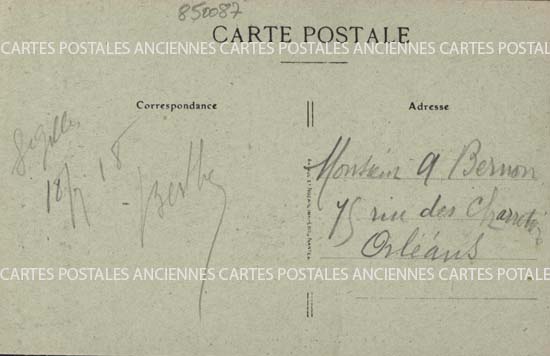 850087
CARTE POSTALE
CARTES POSTALES ANCIENNES CARTES POSTALES ANCIENNES CARTES POSTALES ANCIENNES
Correspondance
Adresse
18/7 18
Berthe
Monsieur A Bernon
75 rue des Charretiers
Orléans
CARTES POSTALES ANCIENNES CARTES POSTALES ANCIENNES CARTES POSTALES ANCIENNES